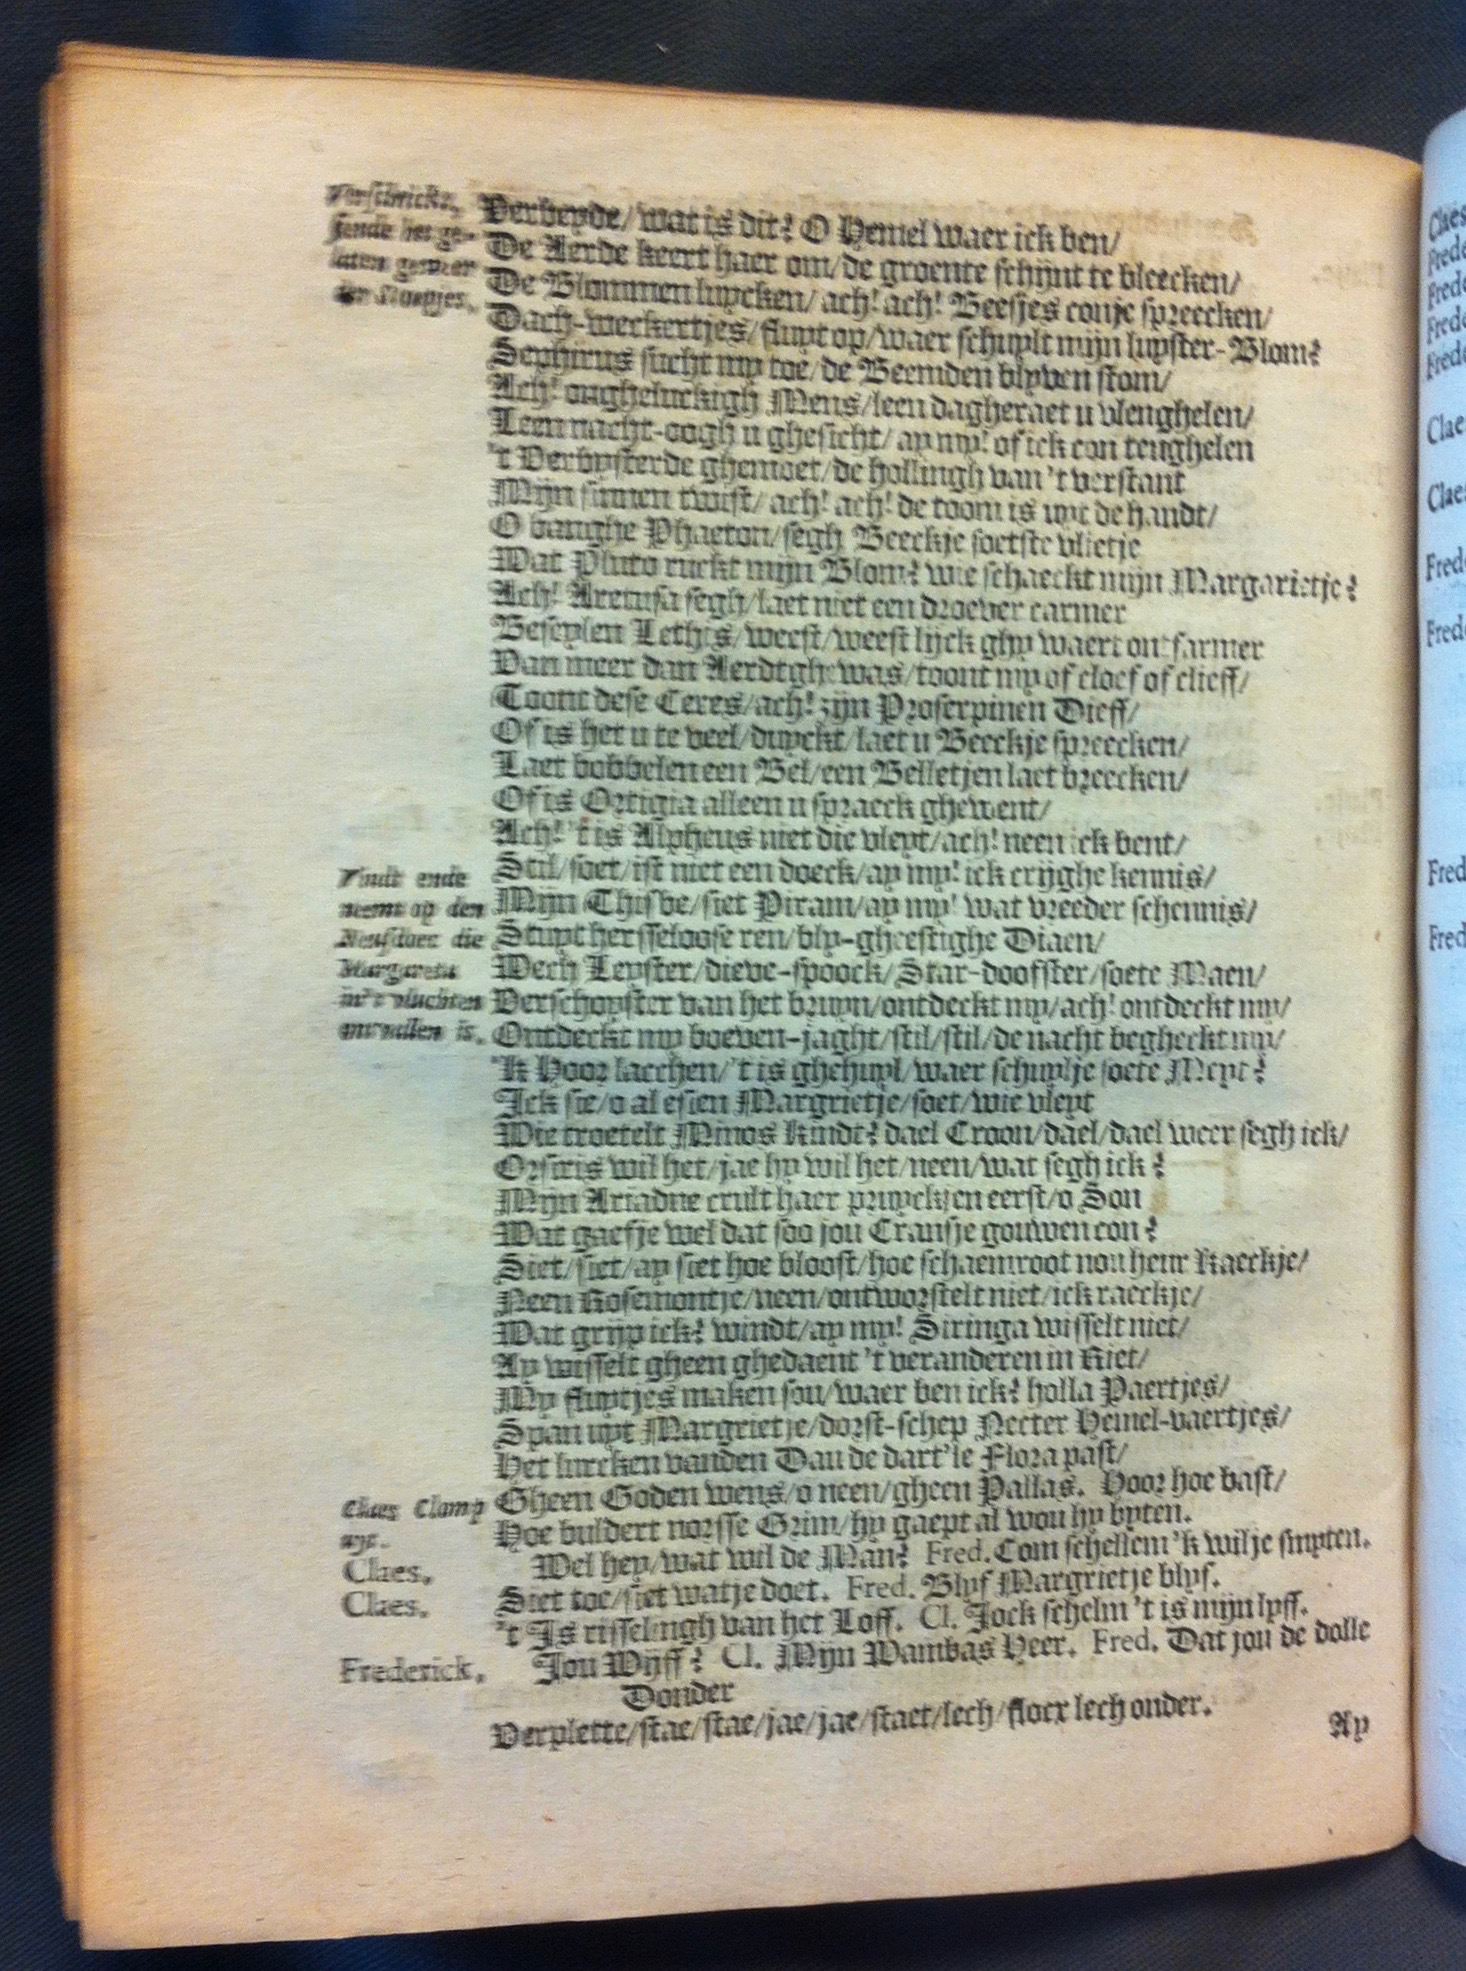 Verschrickt,
siende het ge-
laten
Verbeyde/ wat is dit? O Hemel waer ick ben/
De Aerde keert haer om/ de groente schijnt te bleecken/
De Blommen luycken/ ach! ach! Beesjes conje spreecken/
Dach-werkertjes/ sluyt op/ waer schuylt mijn luyster-Blom?
Sephirus sucht my toe/ de Beemden blyven stom/
Ach! ongheluckigh Mens/ leen dagheraet u vlenghelen/
Leen nacht-oogh u ghesicht/ ay my! of ick con tenghelen
't Verbysterde ghemoet/ de hollingh van 't verstant
Mijn sinnen twist/ ach! ach! de toom is uyt de handt/
O banghe Phaeton/ segh Beeckje soetste vlietje
Wat Pluto ruckt mijn Blom? wie schaeckt mijn Margarietje?
Ach! Aretusa segh/ laet niet een droever carmer
Beseylen Lethis/ weest/ weest lijck ghy waert ontfarmer
Van meer dan Aerdtgh was/ toont my of cloef of clieff/
Toont dese Ceres/ ach! zijn Proserpinen Dieff/
Of is het u te veel/ duyckt/ laet u Beeckje spreecken/
Laet bobbelen een Bel/ een Belletjen laet breecken/
Of is Ortigia alleen u spraeck ghewent/
Ach! 't is Alpheus niet die vleyt/ ach! neen ick bent/
Stil/ soet/ ist niet een doeck/ ay my! ick crijghe kennis/
Vindt ende
neemt op den
Neusdoec die
Margareta
in't vluchten
ontvallen is.
Mijn Thisbe/ siet Piram/ ay my! wat vreeder schennis/
Stuyt hersseloose ren/ bly-gheestighe Diaen/
Wech Leyster/ dieve-spoock/ Star-doofster/ soete Maen/
Verschoyster van het bruyn/ ontdeckt my/ ach! ontdeckt my/
Ontdeckt my boeven-jaght/ stil/ stil/ de nacht begheckt my/
'k Hoor lacchen/ 't is ghehuyl/ waer schuylje soete Meyt?
Ick sie/ o al esien Margrietje/ soet/ wie vleyt
Wie troetelt Minos Kindt? dael Croon/ dael/ dael weer segh ick/
Orsiris wil het/ jae hy wil het/ neen/ wat segh ick?
Mijn Ariadne crult haer pruyckjen eerst/ o Son
Wat gaefje wel dat soo jou Cransje gouwen con?
Siet/ siet/ ay siet hoe bloost/ hoe schaemroot nou heur Kaeckje/
Neen Rosemontje/ neen/ ontworstelt niet/ ick raeckje/
Wat grijp ick? windt/ ay my! Siringa wisselt niet/
Ay wisselt gheen ghedaent 't veranderen in Riet/
My fluytjes maken sou/ waer ben ick? holla Paertjes/
Span uyt Margrietje/ dorst-schep Necter Hemel-vaertjes/
Het lurcken vanden Dau de dart'le Flora past/
Gheen Goden wens/ o neen/ gheen Pallas. Hoor hoe bast/
Claes Clamp
uyt.
Hoe buldert norsse Grim/ hy gaept al wou hy byten.
Claes. Wel hey/ wat wil de Man? Fred. Com schellem 'k wil je smyten.
Claes. Siet toe/ siet watje doet. Fred. Blyf Margrietje blyf.
't Is risselingh van het Loff. Cl. Jock schelm 't is mijn lyff.
Frederick. Jou Wijff? Cl. Mijn Wambas Heer. Fred. Dat jou de dolle
Donder
Verplette/ stae/ stae/ jae/ jae/ staet/ lech/ flocx lech onder.
Ay
Claes
Frede
Frede
Frede
Frede
Clae
Claes
Frede
Frede
Fred
Fred